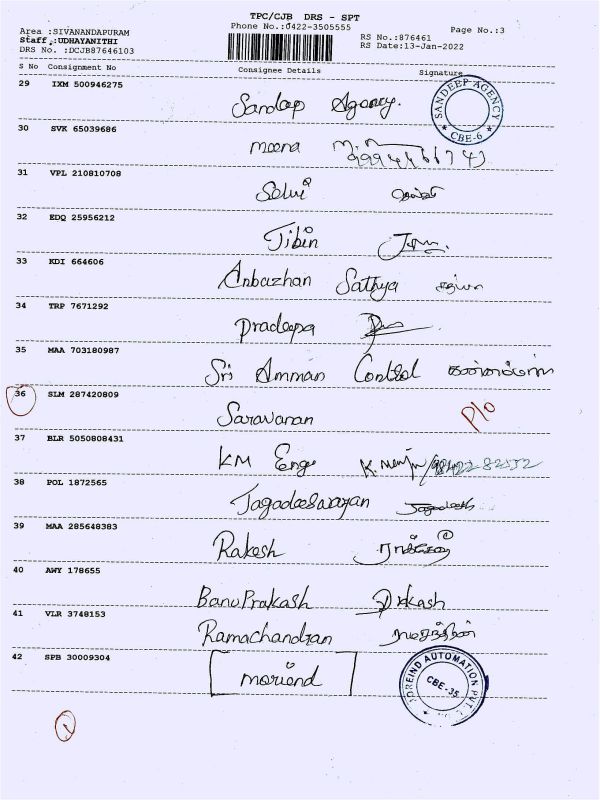 TPC/CJB DRS - SPT
Area :SIVANANDAPURAM Phone No.:0422-3505555 Page No.:3
Staff :UDHAYANITHI RS No.:876461
DRS No. :DCJB87646103 RS Date:13-Jan-2022
S No Consignment No Consignee Details Signature
29 IXM 500946275
Sandeep Agency.
SANDEEP AGENCY
* CBE-6 *
30 SVK 65039686
meena
31 VPL 210810708
Selvi
32 EDQ 25956212
Jibin
33 KDI 664606
Anbazhan Sathya
34 TRP 7671292
Pradeepa
35 MAA 703180987
Sri Amman Control
36 SLM 287420809
Saravanan P/o
37 BLR 5050808431
KM Engg
38 POL 1872565
Jagadeeswaran Jagadeesh
39 MAA 285648383
Rakesh
40 AWY 178655
BanuPrakash Prakash
41 VLR 3748153
Ramachandran
42 SPB 30009304
moriend
AUTOMATION PVT.
CBE-35